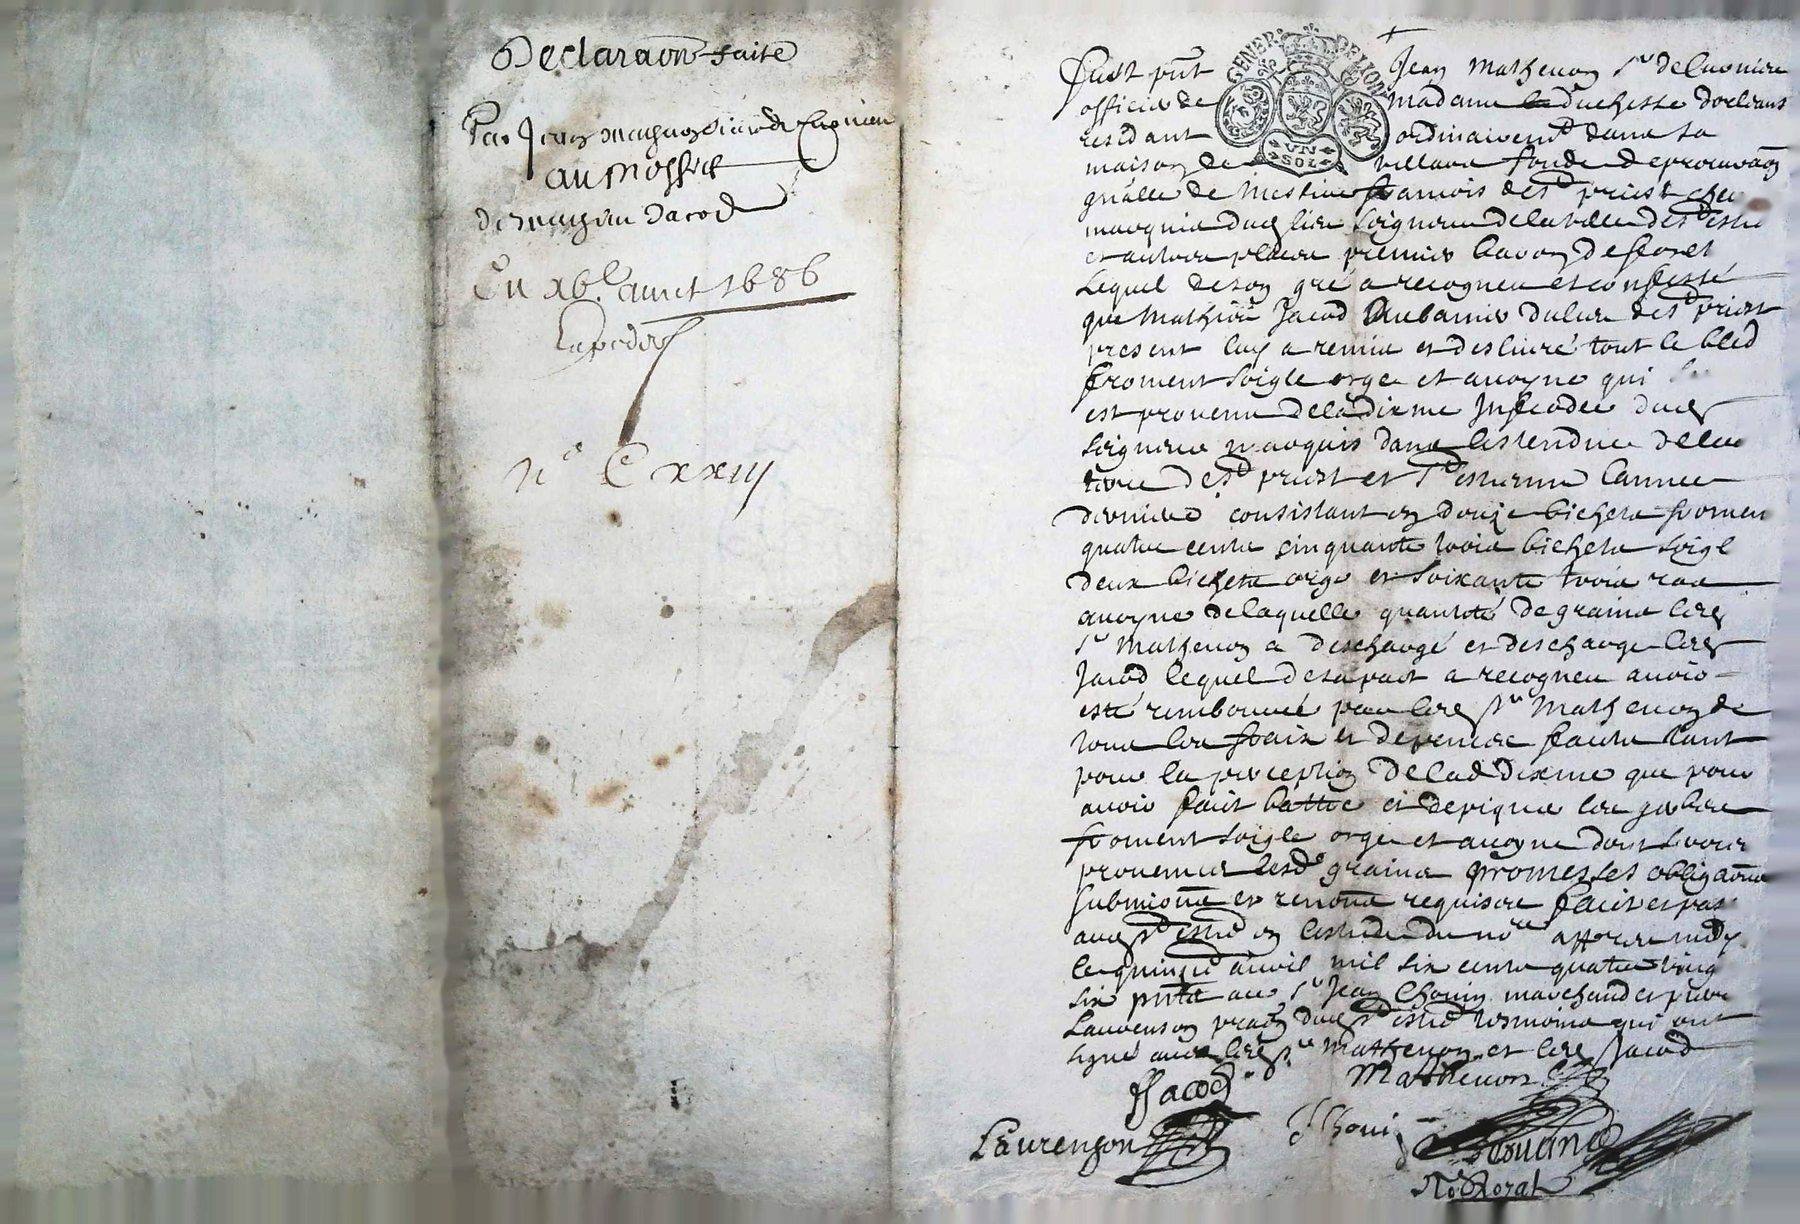 Declaraõn faite
Par Jean Mathevon Sieur de
au proffit
de Mathieu Jacod
Du xbe. avril 1686
N° C xxiij
GENER DE LION
VN
SOL
Fust pñt Jean Mathevon Sr de Curnieu
officier de Madame la duchesse dorleans
residant ordinairemt dans sa
maison de Villars fondé de procuraõn
gñalle de Messire francois de St priest
marquis dud lieu Seigneur de la ville de St estie
et autres places premier baron de forest
Lequel de son gré a recogneu et confessé
que Mathieu Jacod du lieu de St priest
present luy a remis et deslivré tout le bled
froment soigle orge et avoyne qui
est provenu de la dixme Infeodée dud
seigneur marquis dans lestendue de la
terre de St priest et St estienne lannee
derniere consistant en douze bichets fromen
quatre cents cinquante trois bichets soigl
deux bichets orge et soixante trois ras
avoyne de laquelle quantité de grains led
Sr Mathevon a deschargé et descharge led
Jacod lequel de sa part a recogneu avoir
esté remboursé par led Sr Mathevon de
tous les fraix et depences faicts tant
pour la perception de lad dixme que pour
avoir faict battre et depiquer les gerbes
froment soigle orge et avoyne dont
provenus lesd grains promesses obligaõns
submiõns et renõns requises faict et pas
aud St estie en lestude du nore
le quinze avril mil six cents quatre ving
six pñts a ce Sr Jean Chovin marchand et
Laurenson dud St estie tesmoins qui ont
signé avec led Sr Mathevon et led Jacod
Jacod Mathevon
Laurenson Chovin
No Royal